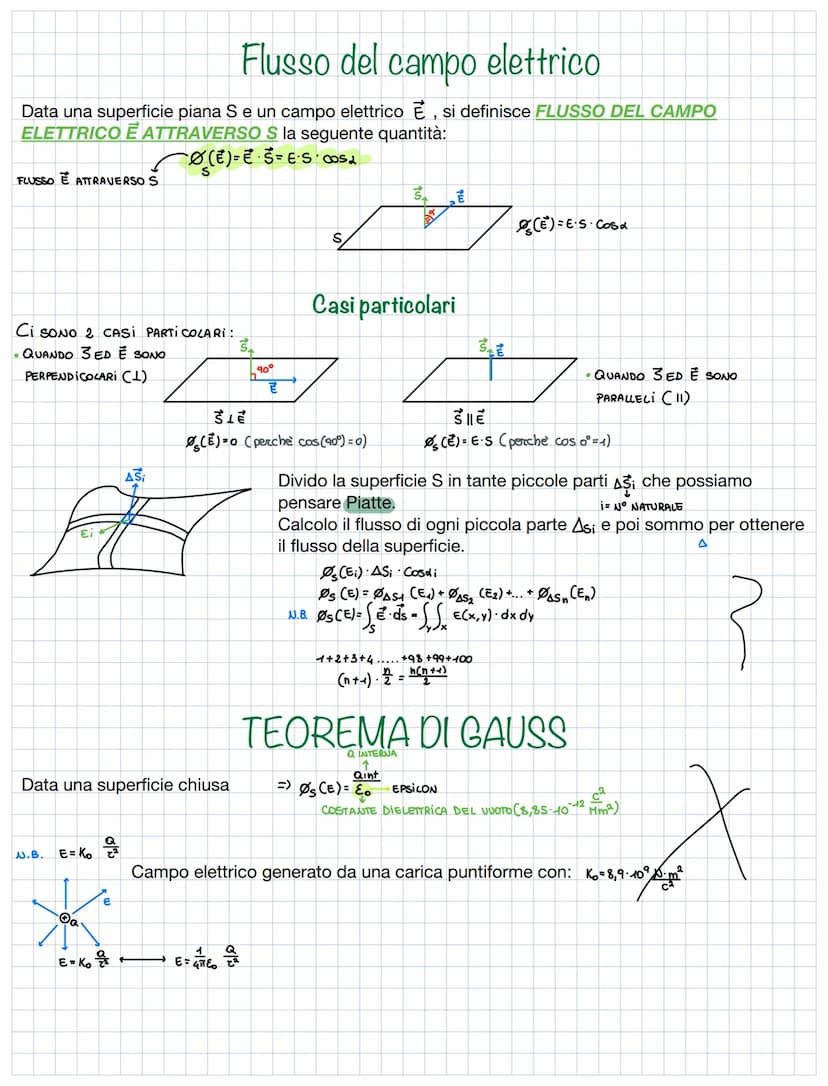 Flusso del campo elettrico
Data una superficie piana S e un campo elettrico E⃗ , si definisce FLUSSO DEL CAMPO
ELETTRICO E⃗ ATTRAVERSO S la seguente quantità:
Ø_S(E⃗)=E⃗·S⃗=E·S·cosα
FLUSSO E⃗ ATTRAVERSO S
S⃗ E⃗
α
S
Ø_S(E⃗)=E·S·Cosα
Casi particolari
Ci SONO 2 CASI PARTICOLARI:
• QUANDO S⃗ ED E⃗ SONO
PERPENDICOLARI (⊥)
S⃗
90°
E⃗
S⃗ E⃗
• QUANDO S⃗ ED E⃗ SONO
PARALLELI (II)
S⃗ ⊥ E⃗
Ø_S(E⃗)=0 (perchè cos(90°)=0)
S⃗ || E⃗
Ø_S(E⃗)=E·S (perchè cos 0°=1)
ΔS⃗i
Ei
Divido la superficie S in tante piccole parti ΔS⃗i che possiamo
pensare Piatte.
i= N° NATURALE
Calcolo il flusso di ogni piccola parte ΔSi e poi sommo per ottenere
il flusso della superficie.
Δ
Ø_S(Ei)·ΔSi·Cosαi
Ø_S(E)=Ø_ΔS1(E1)+Ø_ΔS2(E2)+...+Ø_ΔSn(En)
N.B. Ø_S(E)=∫_S E⃗·ds⃗=∫_y∫_x E(x,y)·dxdy
1+2+3+4.....+98+99+100
(n+1)·n/2=n(n+1)/2
TEOREMA DI GAUSS
Q INTERNA
Data una superficie chiusa => Ø_S(E)=Qint/ε₀ EPSILON
COSTANTE DIELETTRICA DEL VUOTO(8,85·10⁻¹² C²/Mm²)
N.B. E=K₀ Q/r²
Campo elettrico generato da una carica puntiforme con: K₀=8,9·10⁹ N·m²/C²
E
+Q
E=K₀ Q/r² ⟷ E=1/4πε₀ Q/r²